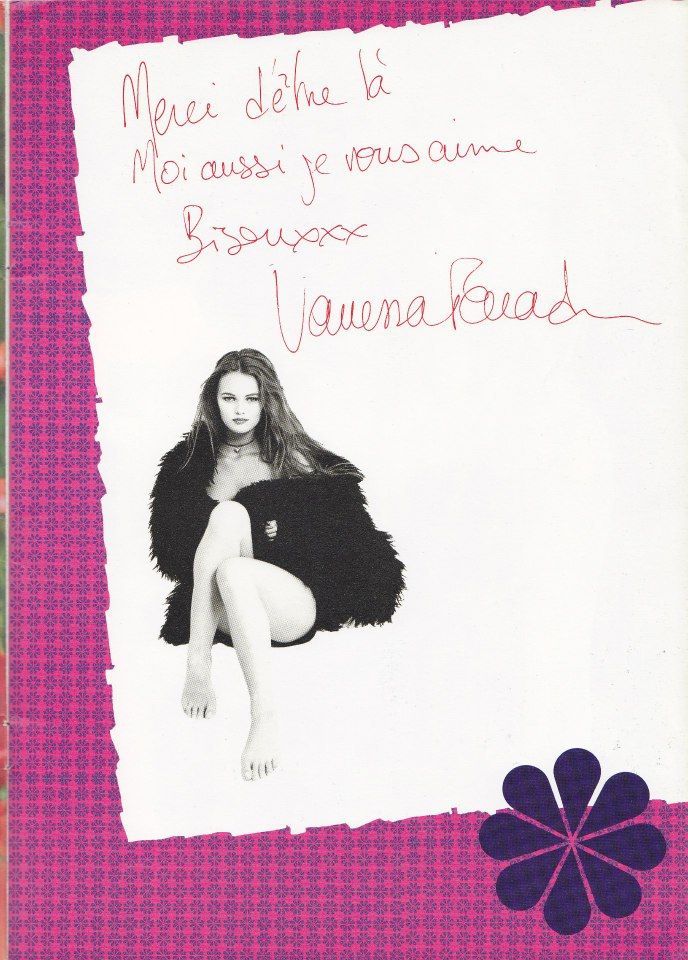 Merci d'être là
Moi aussi je vous aime
Bisouxxx
Vanessa Paradis